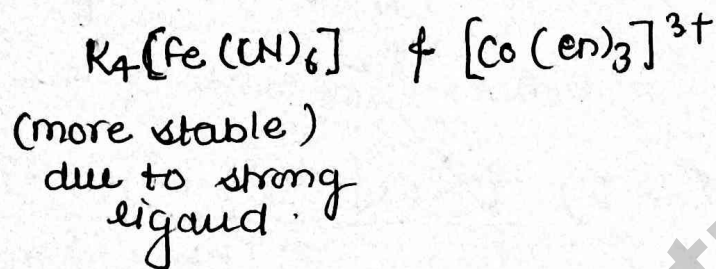 K₄[Fe(CN)₆] & [Co(en)₃]³⁺
(more stable)
due to strong
ligand.